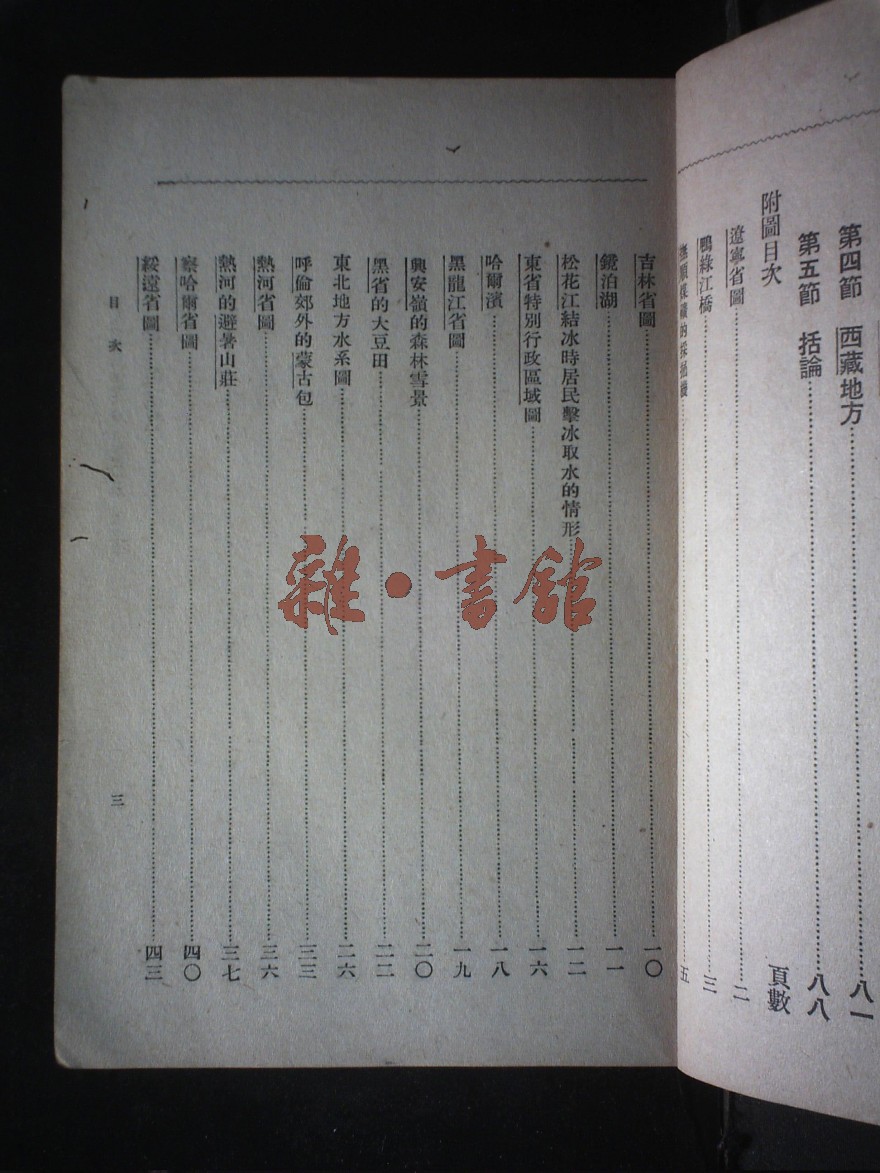 第四節 西藏地方 八一
第五節 括論 八八
附圖目次 頁數
遼寧省圖 二
鴨綠江橋 三
撫順煤礦的採掘機 五
吉林省圖 一〇
鏡泊湖 一一
松花江結冰時居民擊冰取水的情形 一二
東省特別行政區域圖 一六
哈爾濱 一八
黑龍江省圖 一九
興安嶺的森林雪景 二〇
黑省的大豆田 二二
東北地方水系圖 二六
呼倫郊外的蒙古包 三三
熱河省圖 三六
熱河的避暑山莊 三七
察哈爾省圖 四〇
綏遠省圖 四三
目次
三
雜·書館